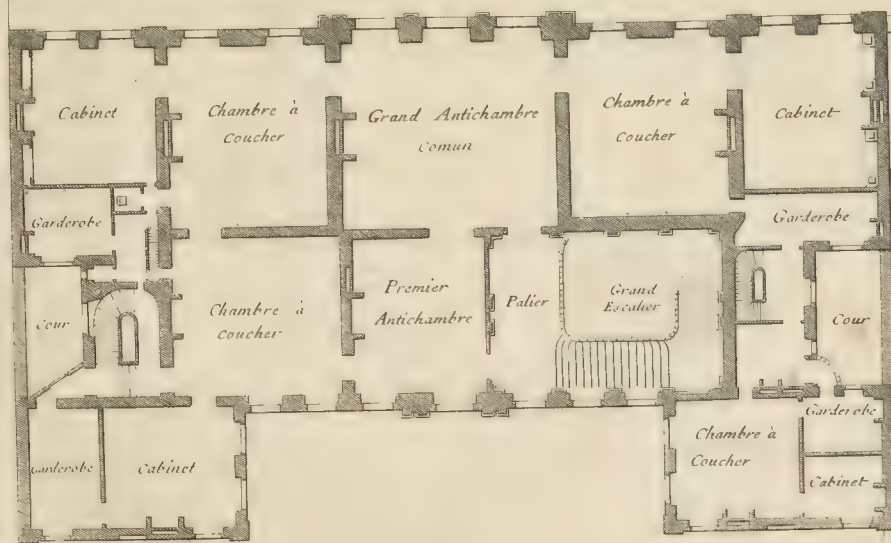 Cabinet
Chambre à
Coucher
Grand Antichambre
Comun
Chambre à
Coucher
Cabinet
Garderobe
Garderobe
Cour
Chambre à
Coucher
Premier
Antichambre
Palier
Grand
Escalier
Cour
Garderobe
Cabinet
Chambre à
Coucher
Garderobe
Cabinet